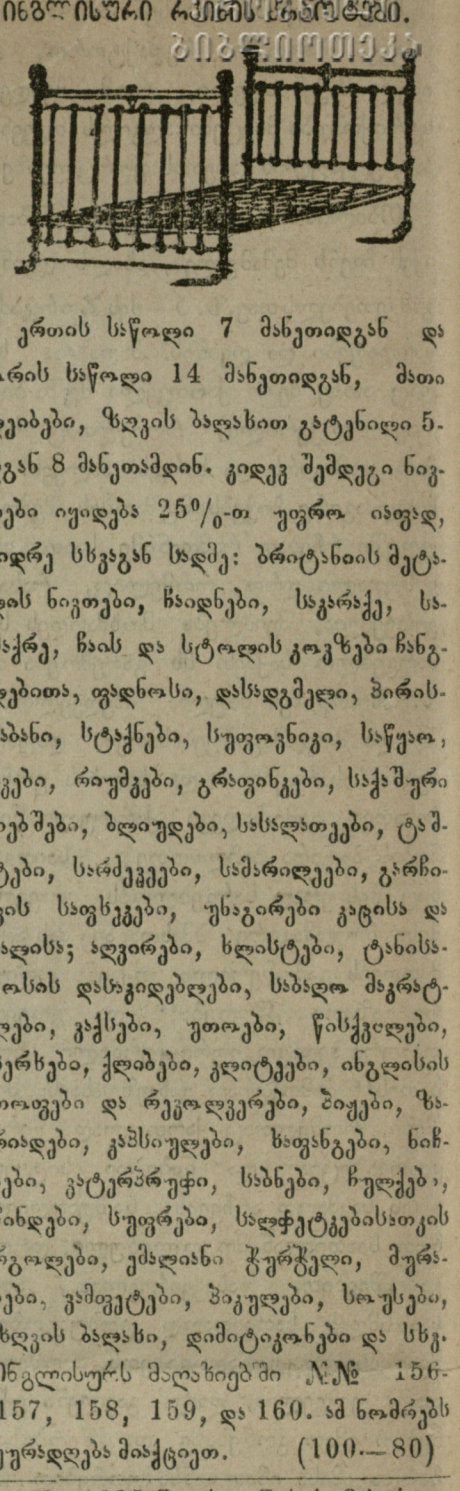 ინგლისური რკინის კრაოტები.
ერთის საწოლი 7 მანეთიდგან და
რის საწოლი 14 მანეთიდგან, მათი
ეიბები, ზღვის ბალახით გატენილი 5-
გან 8 მანეთამდინ. კიდევ შემდეგი ნივ-
ები იყიდება 25%-თ უფრო იაფად,
იდრე სხვაგან სადმე: ბრიტანიის მეტა-
ის ნივთები, ჩაიდნები, საკარაქე, სა-
აქრე, ჩაის და სტოლის კოვზები ჩანგ-
ებითა, ფადნოსი, დასადგმელი, პირის-
აბანი, სტაქნები, სუფოვნიკი, საწუაო,
კები, რიუმკები, გრაფინკები, საქაშური
იებშები, ბლიუდები, სასალათეები, ტაშ-
ტები, სარძევეები, სამარილეები, გარჩი-
ვის საფსკვები, უნაგირები კაცისა და
ალისა; აღვირები, ხლისტები, ტანისა-
ოსის დასაკიდებლები, საბაღო მაკრატ-
ლები, ვაქსები, უთოები, წისქვილები,
ხერხები, ქლიბები, კლიტეები, ინგლისის
თოფები და რევოლვერები, პიჟები, ზა-
რიადები, კაპსიულები, ხაფანგები, ნიჩ-
ები, ვატერპრუჭი, საბნები, ჩულქები,
წინდები, სუფრები, სალფეტკებისათვის
რგოლები, ემალიანი ჭურჭელი, მურა-
ები, კამფეტები, პიკულები, სოუსები,
ზღვის ბალახი, დიმიტიკონები და სხვ.
ინგლისურს მაღაზიებში №№ 156-
157, 158, 159, და 160. ამ ნომრებს
ყურადღება მიაქციეთ. (100—80)